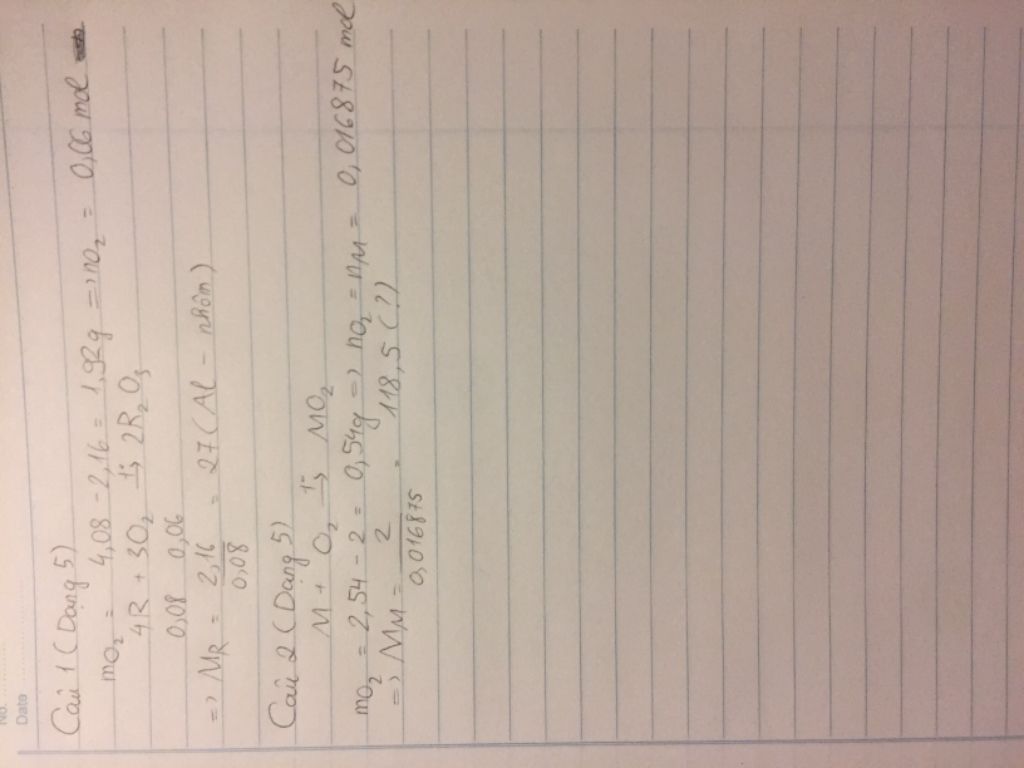 No.
Date
Câu 1 (Dạng 5)
mO2 = 4,08 - 2,16 = 1,92g => nO2 = 0,06 mol
4R + 3O2 t°→ 2R2O3
0,08 0,06
=> MR = 2,16 / 0,08 = 27 (Al - nhôm)
Câu 2 (Dạng 5)
M + O2 t°→ MO2
mO2 = 2,54 - 2 = 0,54g => nO2 = nM = 0,016875 mol
=> MM = 2 / 0,016875 = 118,5 (?)